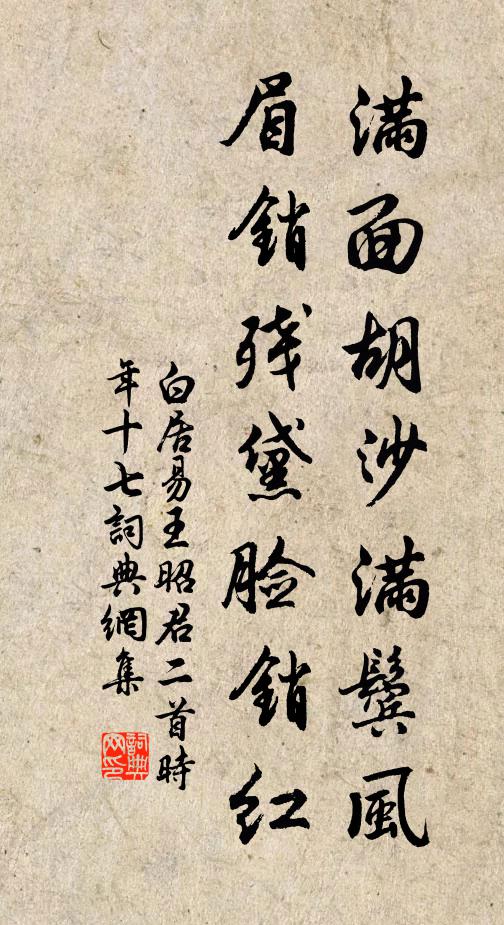 滿面胡沙滿鬢風
眉銷残黛臉銷红
白居易王昭君二首時
年十七詞典網集
詞典网印